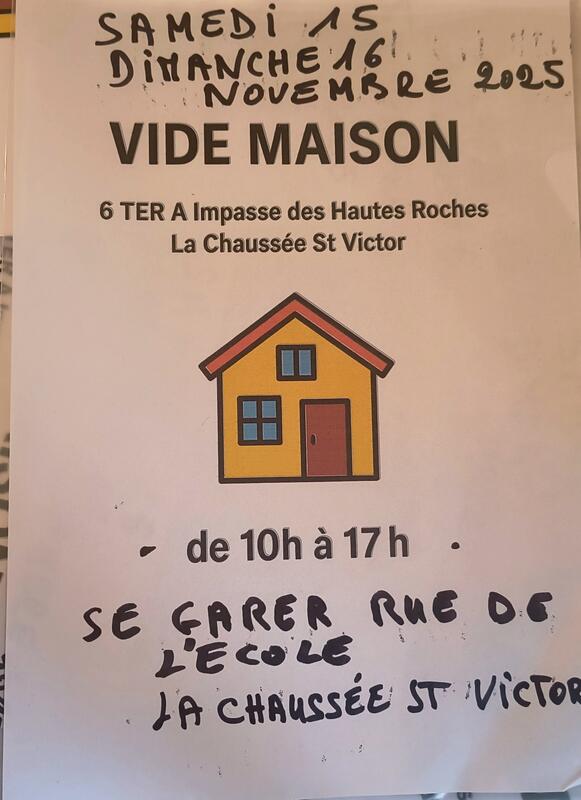 SAMEDI 15
DIMANCHE 16
NOVEMBRE 2025
VIDE MAISON
6 TER A Impasse des Hautes Roches
La Chaussée St Victor
de 10h à 17h
SE GARER RUE DE
L'ECOLE
LA CHAUSSÉE ST VICTOR